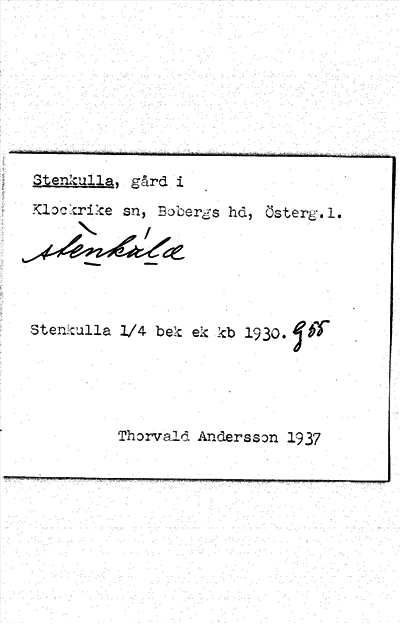 Stenkulla, gård i
Klockrike sn, Bobergs hd, Österg.l.
stènkúla
Stenkulla 1/4 bek ek kb 1930. G 55
Thorvald Andersson 1937